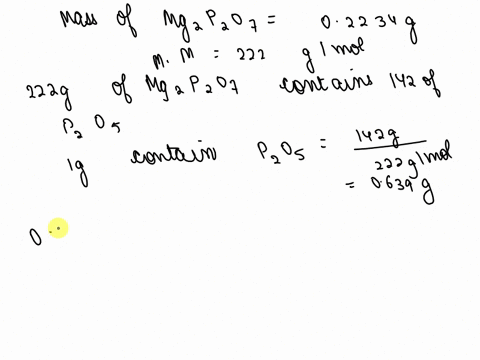 Mass of Mg2P2O7 = 0.2234 g
M. M = 222 g/mol
222g of Mg2P2O7 contains 142 of
P2O5
1g contain P2O5 = 142g / 222g/mol
= 0.639 g
0.